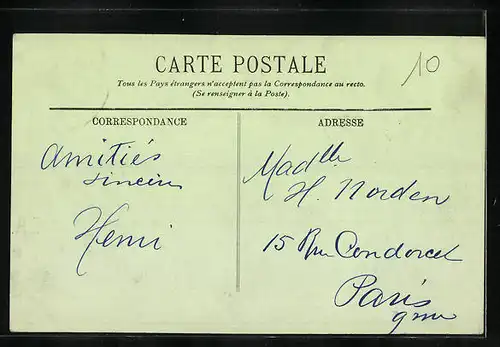 CARTE POSTALE
10
Tous les Pays étrangers n'acceptent pas la Correspondance au recto.
(Se renseigner à la Poste).
CORRESPONDANCE
Amitiés
Henri
ADRESSE
Madlle
H. Norden
15 Rue Condorcet
Paris